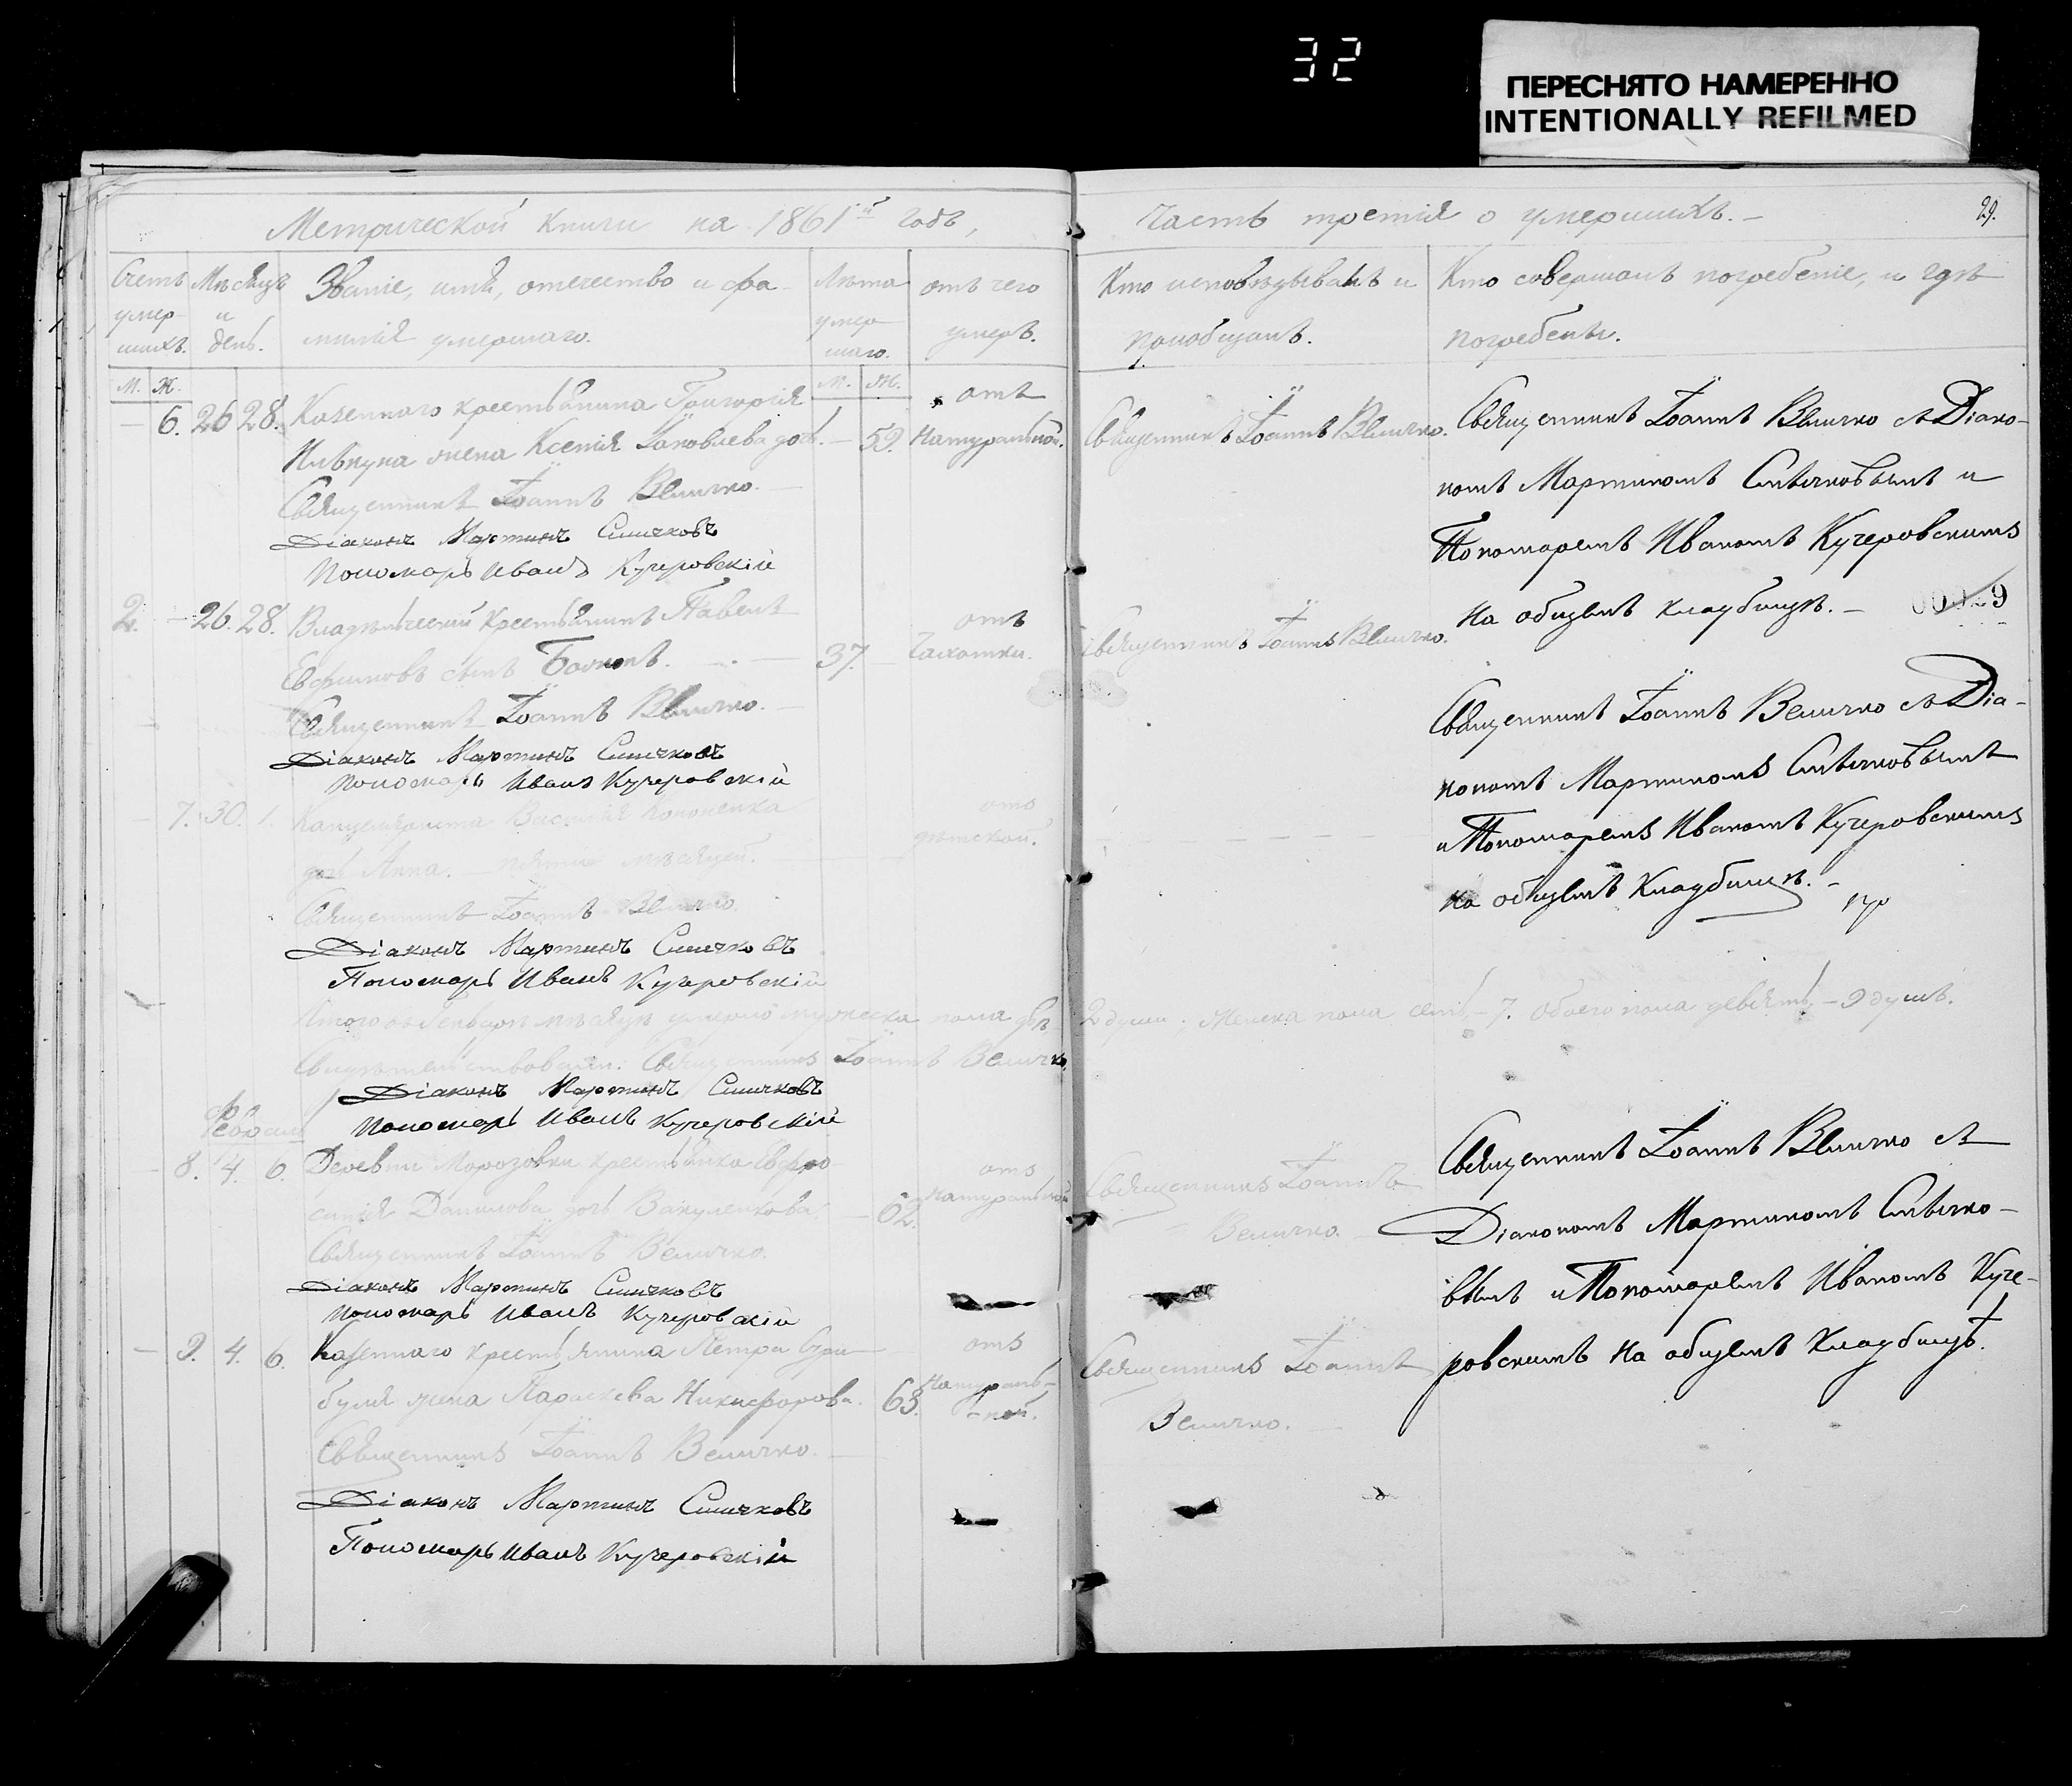 32
ПЕРЕСНЯТО НАМЕРЕННО
INTENTIONALLY REFILMED
Метрической книги на 1861й годъ,
Счетъ умер-шихъ.
Мѣсяцъ и день.
Званіе, имя, отечество и фа-
милія умершаго.
Лѣта умер-шаго.
отъ чего
умеръ.
М. Ж.
М. Ж.
6. 26 28. Казеннаго крестьянина Григорія
жена Ксенія Іаковлева дочь. — 52. отъ Натуральной.
Священникъ Іоаннъ Величко.
Діаконъ Мартинъ Сničковъ
Пономарь Иванъ Кучеровскій
2. — 26. 28. Владѣльческій крестьянинъ Павелъ
Евфимовъ сынъ 37. отъ Чахотки.
Священникъ Іоаннъ Величко.
Діаконъ Мартинъ
Пономарь Иванъ Кучеровскій
— 7. 30. 1. Канцеляриста Василія Кононенка
дочь Анна. — пяти мѣсяцей. отъ дѣтской.
Священникъ Іоаннъ Величко.
Діаконъ Мартинъ
Пономарь Иванъ Кучеровскій
Итого въ Генварѣ мѣсяцѣ умерло мужеска пола двѣ
Свидѣтельствовали: Священникъ Іоаннъ Величко,
Діаконъ Мартинъ
Пономарь Иванъ Кучеровскій
Февраль
— 8. 4. 6. Деревни Морозовки крестьянка Евфро-
синія Данилова дочь Вакуленкова. — 62. отъ Натуральной
Священникъ Іоаннъ Величко.
Діаконъ Мартинъ
Пономарь Иванъ Кучеровскій
— 9. 4. 6. Казеннаго крестьянина Петра Стри-
буля жена Параскева Никифорова. 63. отъ Натураль-ной.
Священникъ Іоаннъ Величко.
Діаконъ Мартинъ
Пономарь Иванъ Кучеровскій
Часть третія о умершихъ. —
29.
Кто исповѣдывалъ и
пріобщалъ.
Кто совершалъ погребеніе, и гдѣ
погребены.
Священникъ Іоаннъ Величко.
Священникъ Іоаннъ Величко съ Діако-
номъ Мартиномъ и
Пономаремъ Иваномъ Кучеровскимъ
на общемъ кладбищѣ. —
Священникъ Іоаннъ Величко.
Священникъ Іоаннъ Величко съ Діа-
кономъ Мартиномъ
и Пономаремъ Иваномъ Кучеровскимъ
на общемъ Кладбищѣ. —
2 души; Женска пола семь, — 7. Обоего пола девять, — 9 душъ.
Священникъ Іоаннъ
Величко.
Священникъ Іоаннъ Величко съ
Діакономъ Мартиномъ
вымъ и Пономаремъ Иваномъ Куче-
ровскимъ на общемъ Кладбищѣ.
Священникъ Іоаннъ
Величко.